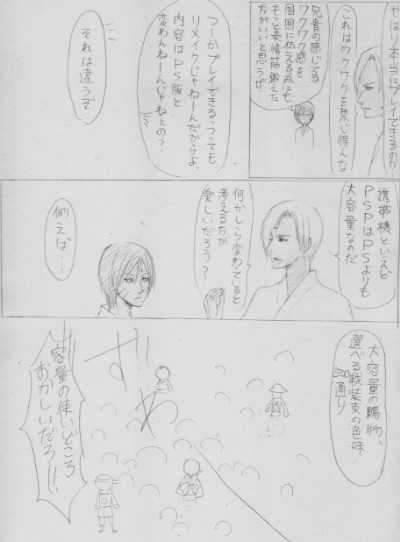 やはり本当にプレイできるのか…
これはワクワクを禁じ得んな
兄貴の感じてる
ワクワク感を
周囲に伝える為にも
もっと表情筋鍛えた
方がいいと思うぜ
つーかプレイできるっつっても
リメイクじゃねーんだからよ、
内容はPS版と
変わんねーんじゃねぇの?
それは違うぞ
携帯機といえど
PSPはPSよりも
大容量なのだ
何かしら変わっていると
考える方が
楽しいだろう?
例えば…
大容量の賜物、
選べる戦装束の色味
500通り
ざわ
容量の使いどころ
おかしいだろー!!